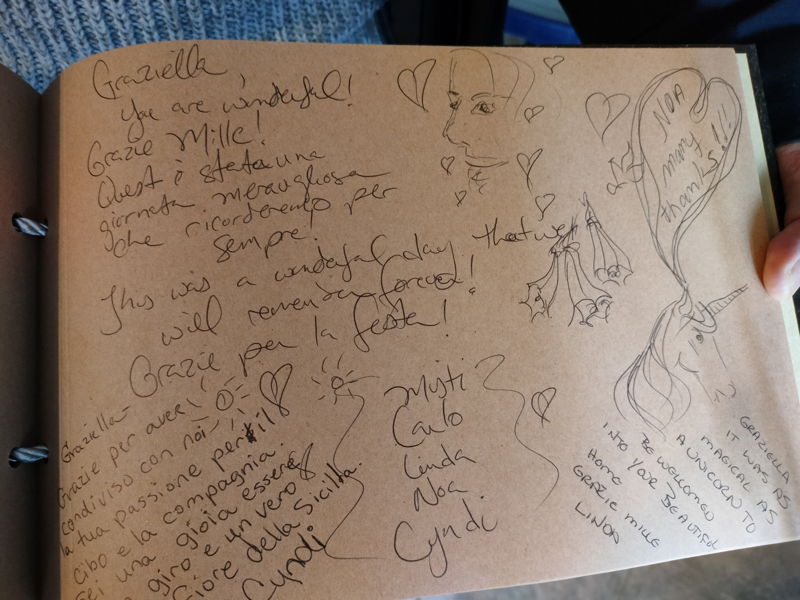 Graziella,
You are wonderful!
Grazie Mille!
Quest è stata una
giornata meravigliosa
che ricorderemo per
sempre!
This was a wonderful day that we
will remember forever!
Grazie per la festa!
NOA
many
thanks!!!
Misti
Carlo
Linda
Noa
Cyndi
Graziella-
Grazie per aver
condiviso con noi
la tua passione per il
cibo e la compagnia.
Sei una gioia essere
in giro e un vero
Fiore della Sicilia.
Cyndi
GRAZIELLA
IT WAS AS
MAGICAL AS
A UNICORN TO
BE WELCOMED
INTO YOUR BEAUTIFUL
HOME
GRAZIE MILLE
LINDA